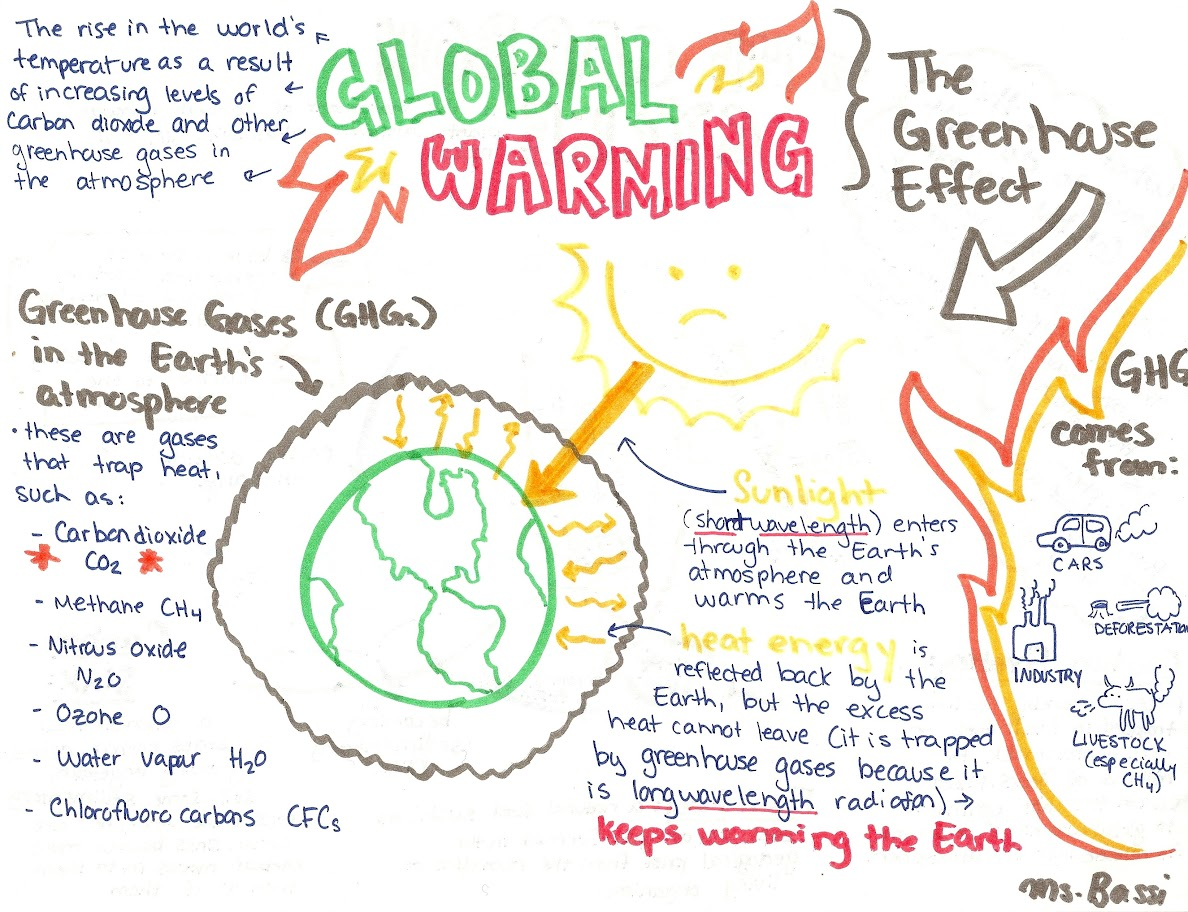 The rise in the world's
temperature as a result
of increasing levels of
Carbon dioxide and other
greenhouse gases in
the atmosphere
GLOBAL
WARMING
The
Greenhouse
Effect
Greenhouse Gases (GHGs)
in the Earth's
atmosphere
• these are gases
that trap heat,
such as:
- Carbon dioxide
CO2
- Methane CH4
- Nitrous oxide
N2O
- Ozone O
- Water vapur H2O
- Chlorofluoro carbons CFCs
Sunlight
(short wavelength) enters
through the Earth's
atmosphere and
warms the Earth
heat energy is
reflected back by the
Earth, but the excess
heat cannot leave (it is trapped
by greenhouse gases because it
is long wavelength radiation) →
keeps warming the Earth
GHG
comes
from:
CARS
DEFORESTATION
INDUSTRY
LIVESTOCK
(especially
CH4)
Ms. Bassi